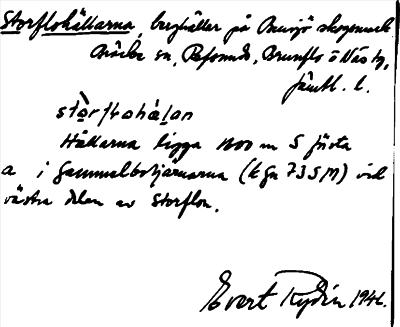 Storflohällarna, berghällar på Bensjö skogsmark
Bräcke sn, Refsunds, Brunflo o Näs tg,
Jämtl. l.
stòrflohälan
Hällarna ligga 1200 m S första
a i Gammelbotjärnarna (kfn 735M) vid
västra delen av Storflon.
Evert Rydén 1946.